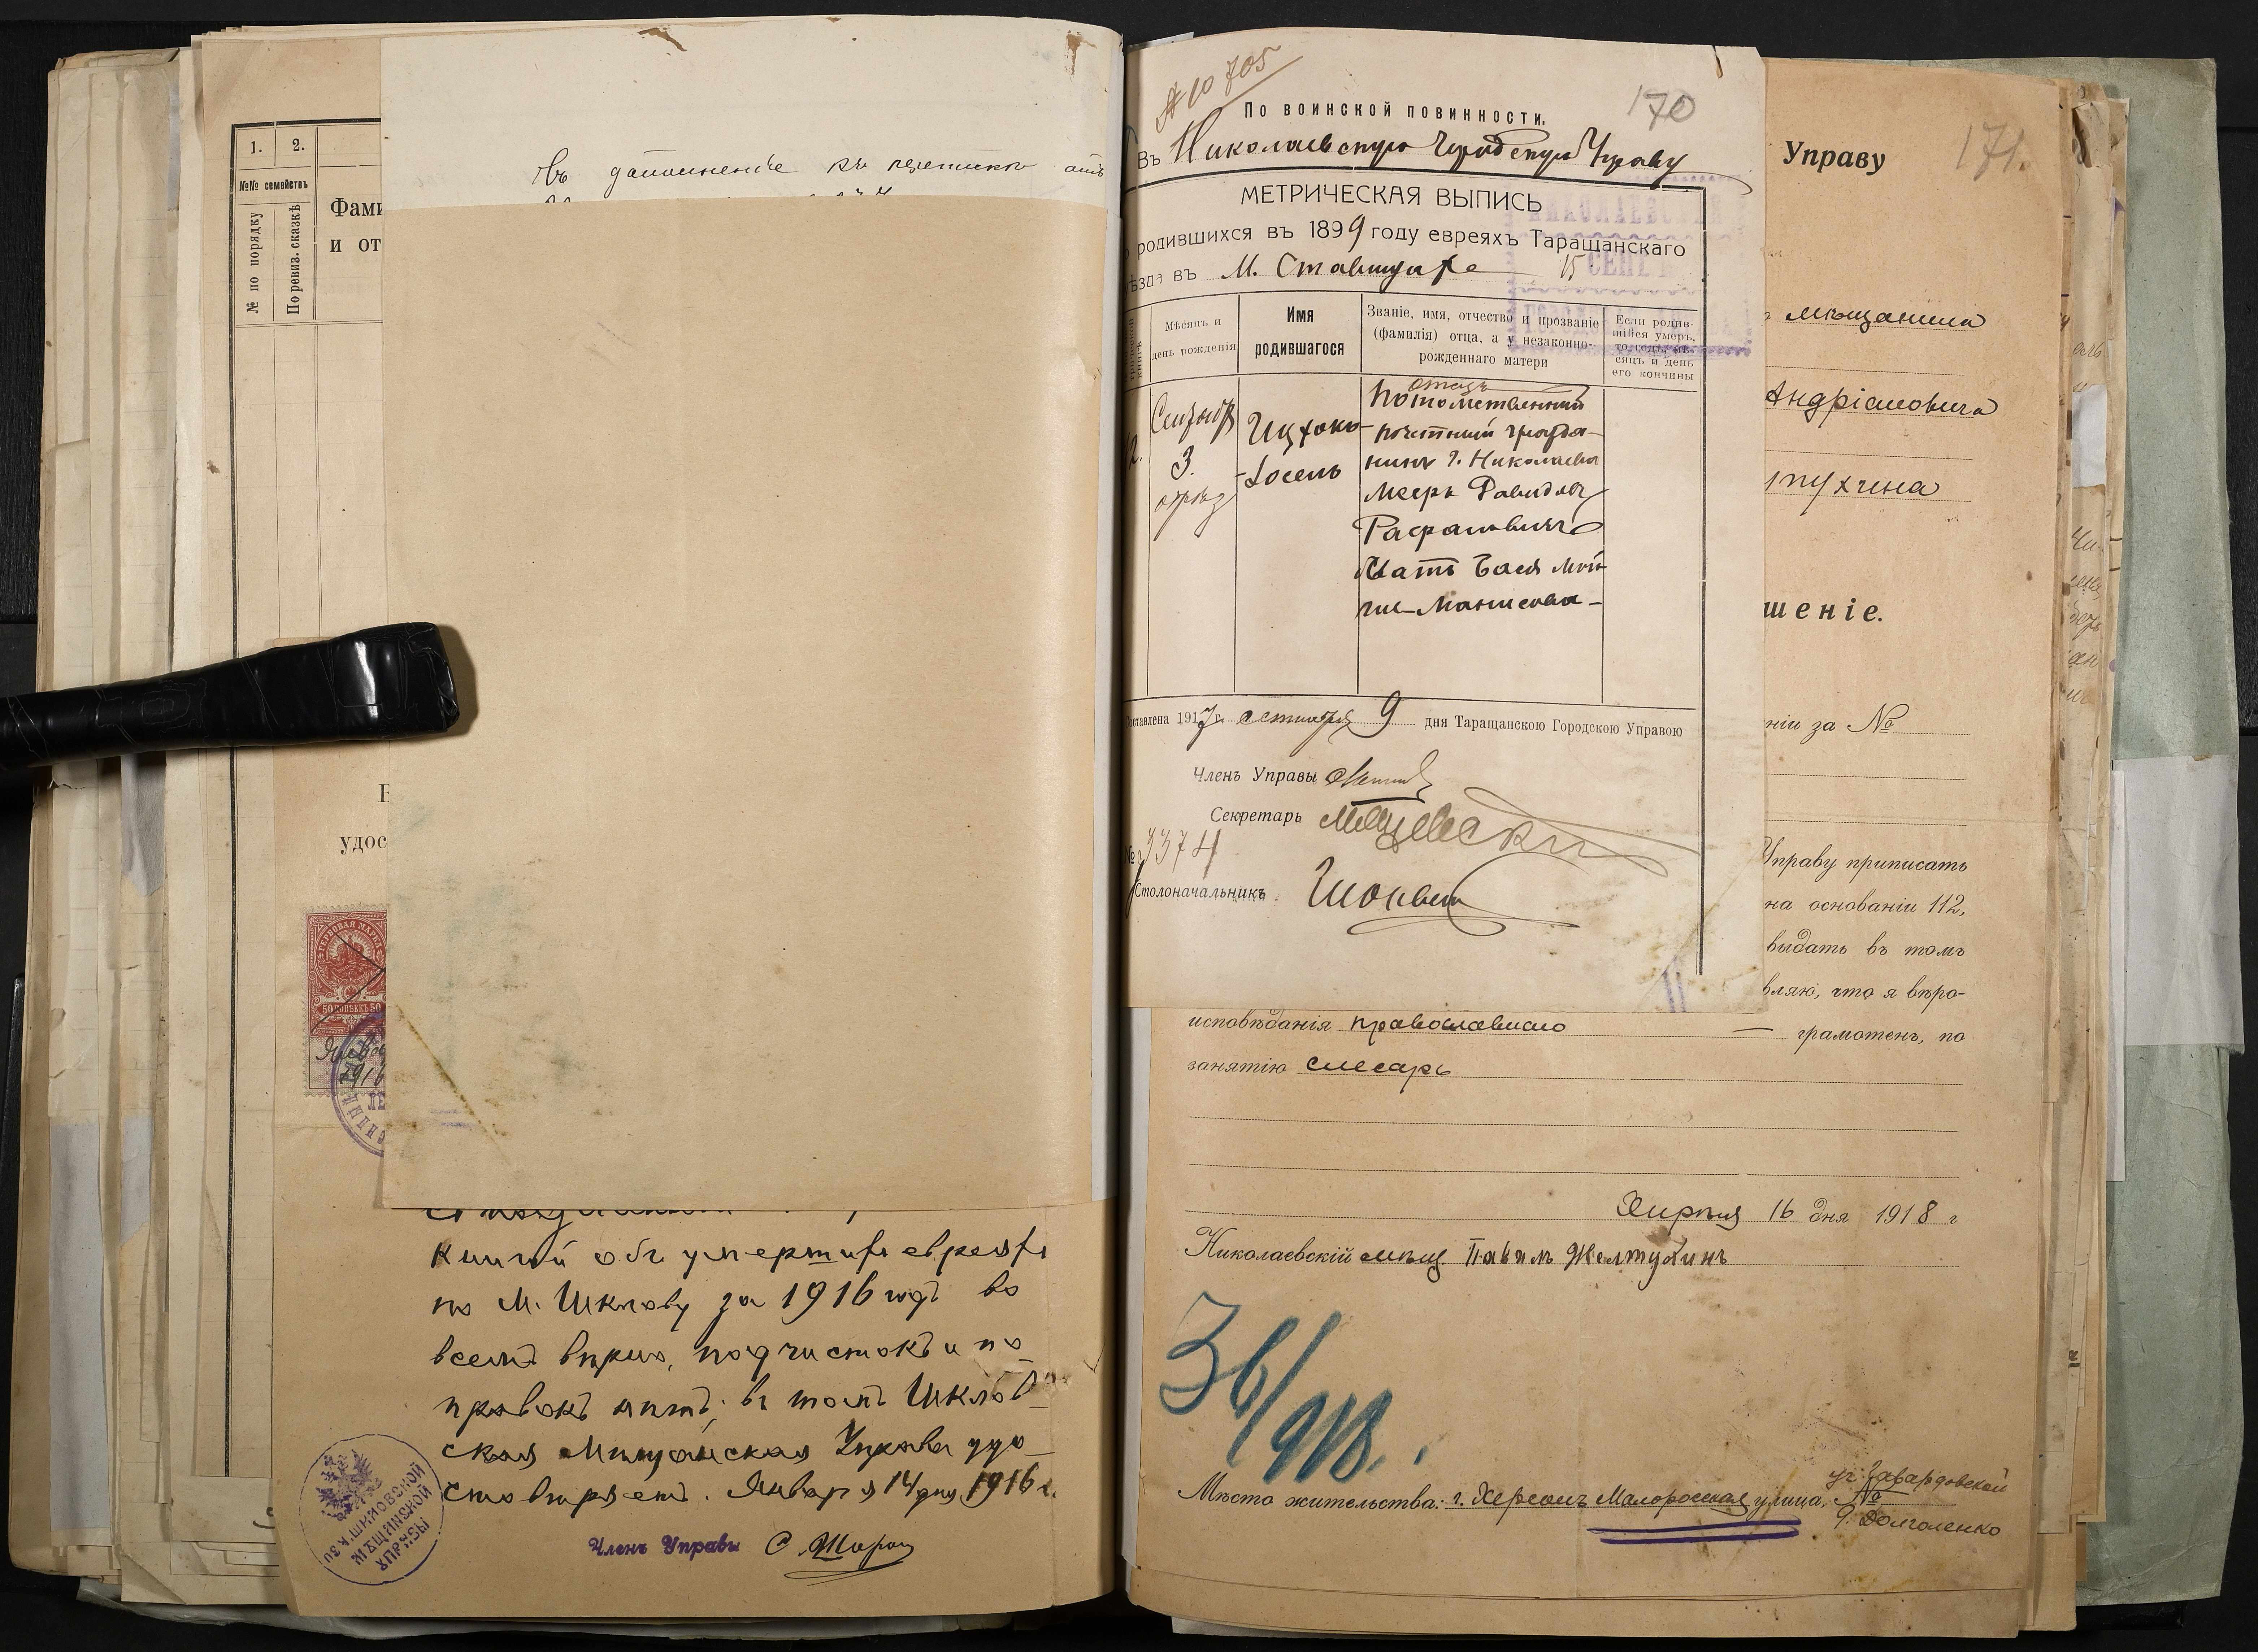 1. 2.
№№ семействъ
№ по порядку
По ревиз. сказкѣ
Фами
и от
Въ дополненіе къ
удос
ГЕРБОВАЯ МАРКА
50 КОПѢЕКЪ 50
книгой объ умершихъ евреяхъ
по М. Шклову за 1916 годъ во
всемъ вѣрно, подчистокъ и по
правокъ нѣтъ; въ томъ Шклов-
ская Мѣщанская Управа удо-
стовѣряетъ. Января 14 дня 1916 г.
Членъ Управы
№ 10705
170
По воинской повинности.
Въ Николаевскую Городскую Управу
МЕТРИЧЕСКАЯ ВЫПИСЬ
родившихся въ 1899 году евреяхъ Таращанскаго
ѣзда въ М. Ставищахъ
15 СЕН
Мѣсяцъ и
день рожденія
Имя
родившагося
Званіе, имя, отчество и прозваніе
(фамилія) отца, а у незаконно-
рожденнаго матери
Если родив-
шійся умеръ,
то годъ, мѣ-
сяцъ и день
его кончины
Сентября
3.
Ицхокъ-
Іосель
отецъ
Потомственный
почетный гражда-
нинъ г. Николаева
Мееръ Давидовъ
Рафаловичъ
Мать Бася
Составлена 1917 г. сентября 9 дня Таращанскою Городскою Управою
Членъ Управы
Секретарь
№ 3374
Столоначальникъ
Управу
171.
мѣщанина
Андріановича
лтухина
шеніе.
ніи за №
Управу приписать
на основаніи 112,
выдать въ томъ
вляю, что я вѣро-
исповѣданія православнаго — грамотенъ, по
занятію слесарь
Апрѣля 16 дня 1918 г
Николаевскій мѣщ. Павелъ Желтухинъ
36/918.
Мѣсто жительства: г. Херсонъ Малоросская улица, №
д. Долголенко